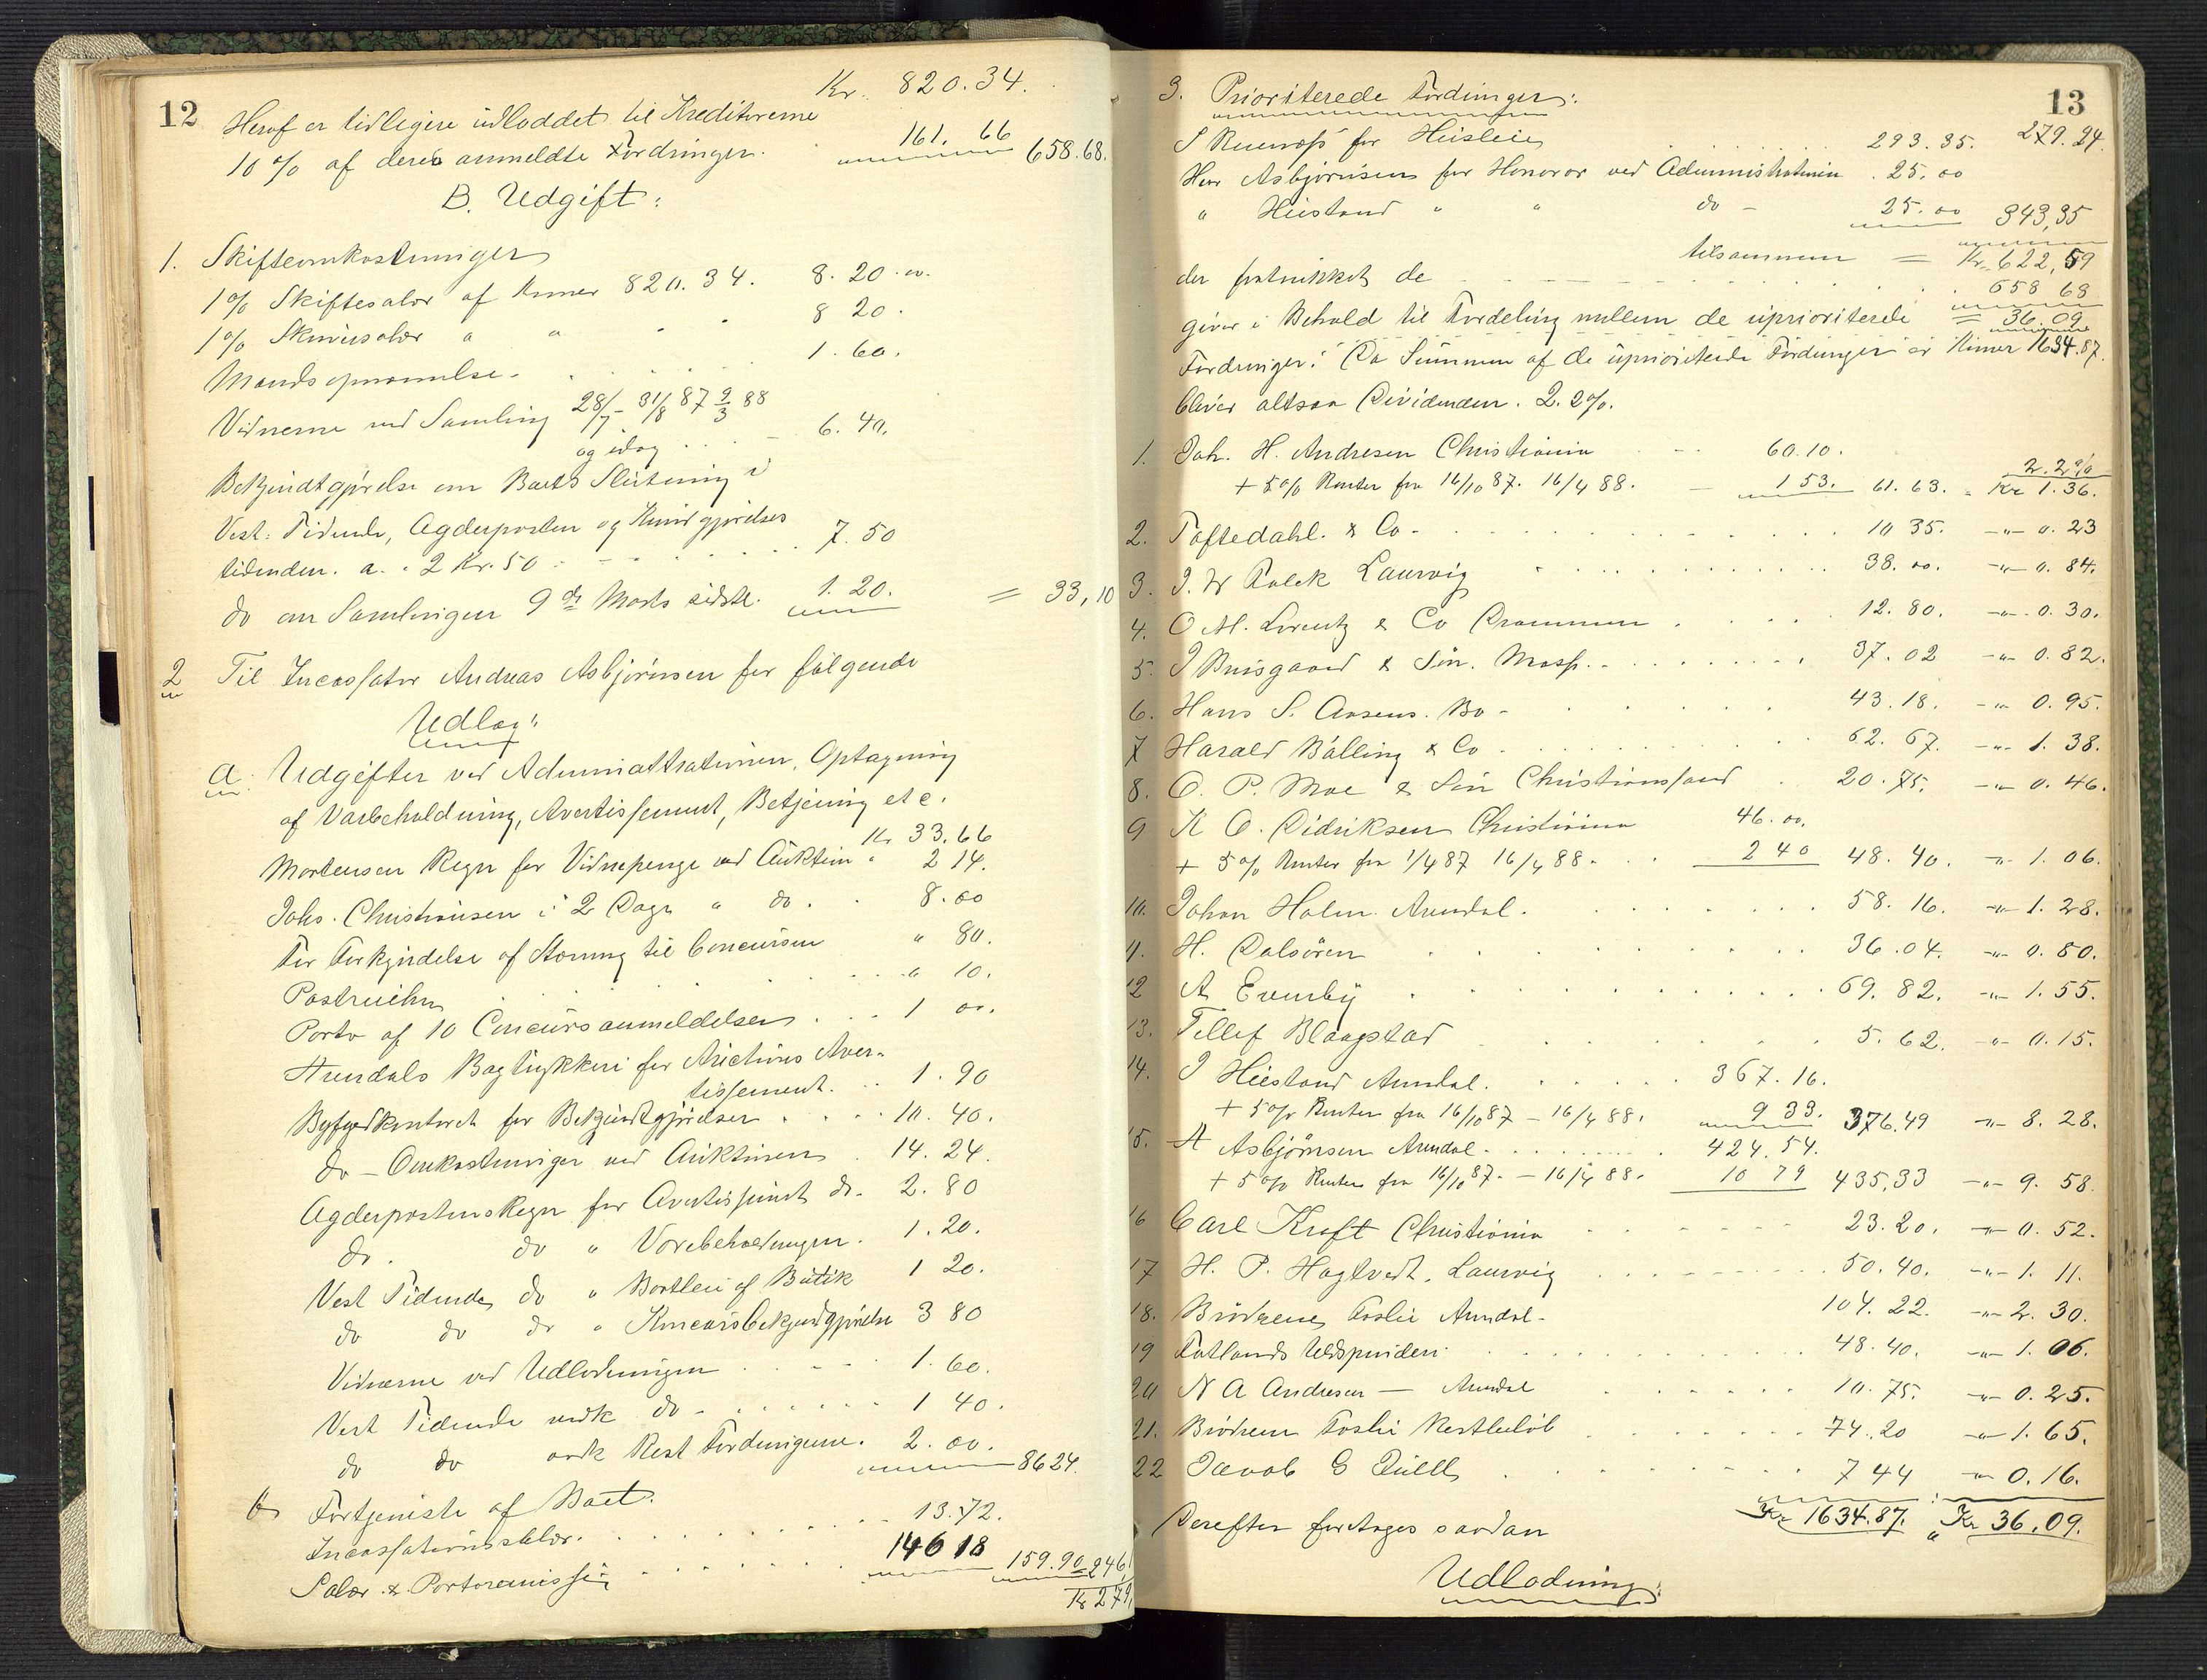 12
Kr. 820.34.
Heraf er tidligere udloddet til Kreditorerne
10% af deres anmeldte Fordringer. 161.66 658.68.
B. Udgift:
1. Skifteomkostninger
1% Skiftesalær af Kroner 820.34. 8.20.
1% Skriversalær " " 8 20.
Mandsopnævnelse 1.60.
Vidnerne ved Samling 28/7 - 31/8 87 9/3 88
og idag 6.40.
Bekjendtgjørelse om Boets Slutning i
Vest. Tidende, Agderposten og Kundgjørelses
tidenden. a. 2 Kr. 50 7.50
do om Samlingen 9de Marts sidstl. 1.20. = 33,10
2 Til Incassator Andreas Asbjørnsen for følgende
Udlæg:
a. Udgifter ved Administrationen, Optagning
af Varbeholdning, Avertissement, Betjening etc.
Kr 33.66
Mortensen Regn for Vidnepenge ved Auktion " 2 14.
Johs. Christensen i 2 Dage " do. 8.00
For Forkyndelse af Stævning til Concursen " 80.
Postruihn " 10.
Porto af 10 Concursanmeldelser 1 00.
Arendals Bogtrykkeri for Auctions Aver-
tissement. 1.90
Byfogedkontoret for Bekjendtgjørelser 10.40.
do - Omkostninger ved Auktionen 14.24.
Agderpostens Regn for Avertissement do. 2.80
do. do " Varebeholdningen. 1.20.
Vest Tidende do " Bortleie af Butik 1 20.
do do do " Concursbekjendtgjørelse 3 80
Vidnerne ved Udlodningen 1.60.
Vest Tidende vedk do 1 40.
do do vedk Rest Fordringerne. 2.00. 86 24.
b Fortjeneste af Boet.
Incassationssalær. 13.72.
Salær & Portoremisse 146 18 159.90 246,1
Kr 279,
13
3. Prioriterede Fordringer:
279.24.
S for Husleie 293.35.
Herr Asbjørnsen for Honorar ved Administrationen 25.00
" Hiestand " " do - 25.00 343,35
tilsammen = Kr. 622,59
der fratrukket de 658 68
giver i Behold til Fordeling mellem de uprioriterede = 36.09
Fordringer. Da Summen af de uprioriterede Fordringer er Kroner 1634.87.
bliver altsaa Dividenden. 2.2%.
2.2%
1. Joh. H. Andresen Christiania 60.10.
+ 5% Renter fra 16/10 87. 16/4 88. 1 53. 61.63. = Kr 1.36.
2. Toftedahl & Co. 10 35. -"- 0.23
3. J. W Falck Laurvig 38.00. -"- 0.84.
4. O. M. Lorentz & Co Drammen 12.80. -"- 0.30.
5. J Bruisgaard & Søn. Moss. 37.02 -"- 0.82.
6. Hans S. Aasens. Bo - 43.18. -"- 0.95.
7 Harald Bålling & Co 62.67. -"- 1.38.
8. O. P. Moe & Søn Christianssand 20.75. -"- 0.46.
9 K O. Didriksen Christiania 46.00.
+ 5% Renter fra 1/4 87 16/4 88. 2 40 48.40. -"- 1.06.
10. Johan Holm. Arendal. 58.16. -"- 1.28.
11. H. Dalsören 36.04. -"- 0.80.
12 A Evenby 69.82. -"- 1.55.
13. Tellef Blaagstad 5.62. -"- 0.15.
14. J Hiestand Arendal. 367.16.
+ 5% Renter fra 16/10 87 - 16/4 88. 9 33. 376.49 -"- 8.28.
15. A Asbjørnsen Arendal. 424.54.
+ 5% Renter fra 16/10 87. - 16/4 88. 10 79 435,33 -"- 9.58.
16 Carl Kraft Christiania 23.20. -"- 0.52.
17 H. P. Hagtvedt. Laurvig 50.40. -"- 1.11.
18. Brødrene Foslie Arendal. 104.22. -"- 2.30.
19 Fatlands Uldspinderi 48.40. -"- 1.06.
20 N A Andresen - Arendal 10.75. -"- 0.25.
21. Brødrene Foslie Restbeløb 74.20 -"- 1.65.
22 Jacob G 7 44 -"- 0.16.
Kr 1634.87. Kr 36.09.
Derefter foretages saadan
Udlodning: